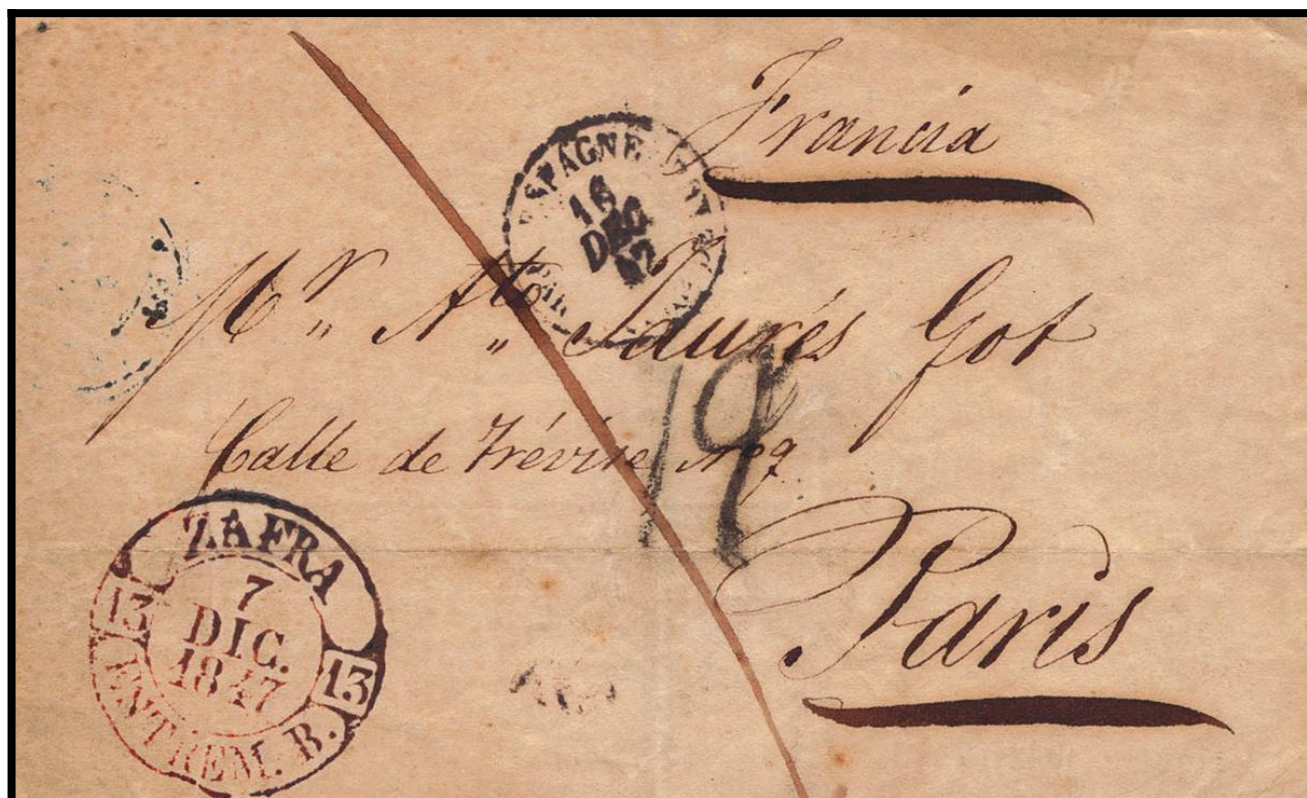 Francia
ESPAGNE
16
DEC
47
Mr. Ate. Jaurés Got
Calle de Trévise No 9
19
Paris
ZAFRA
7
DIC.
1847
13 13
ESTREM. B.